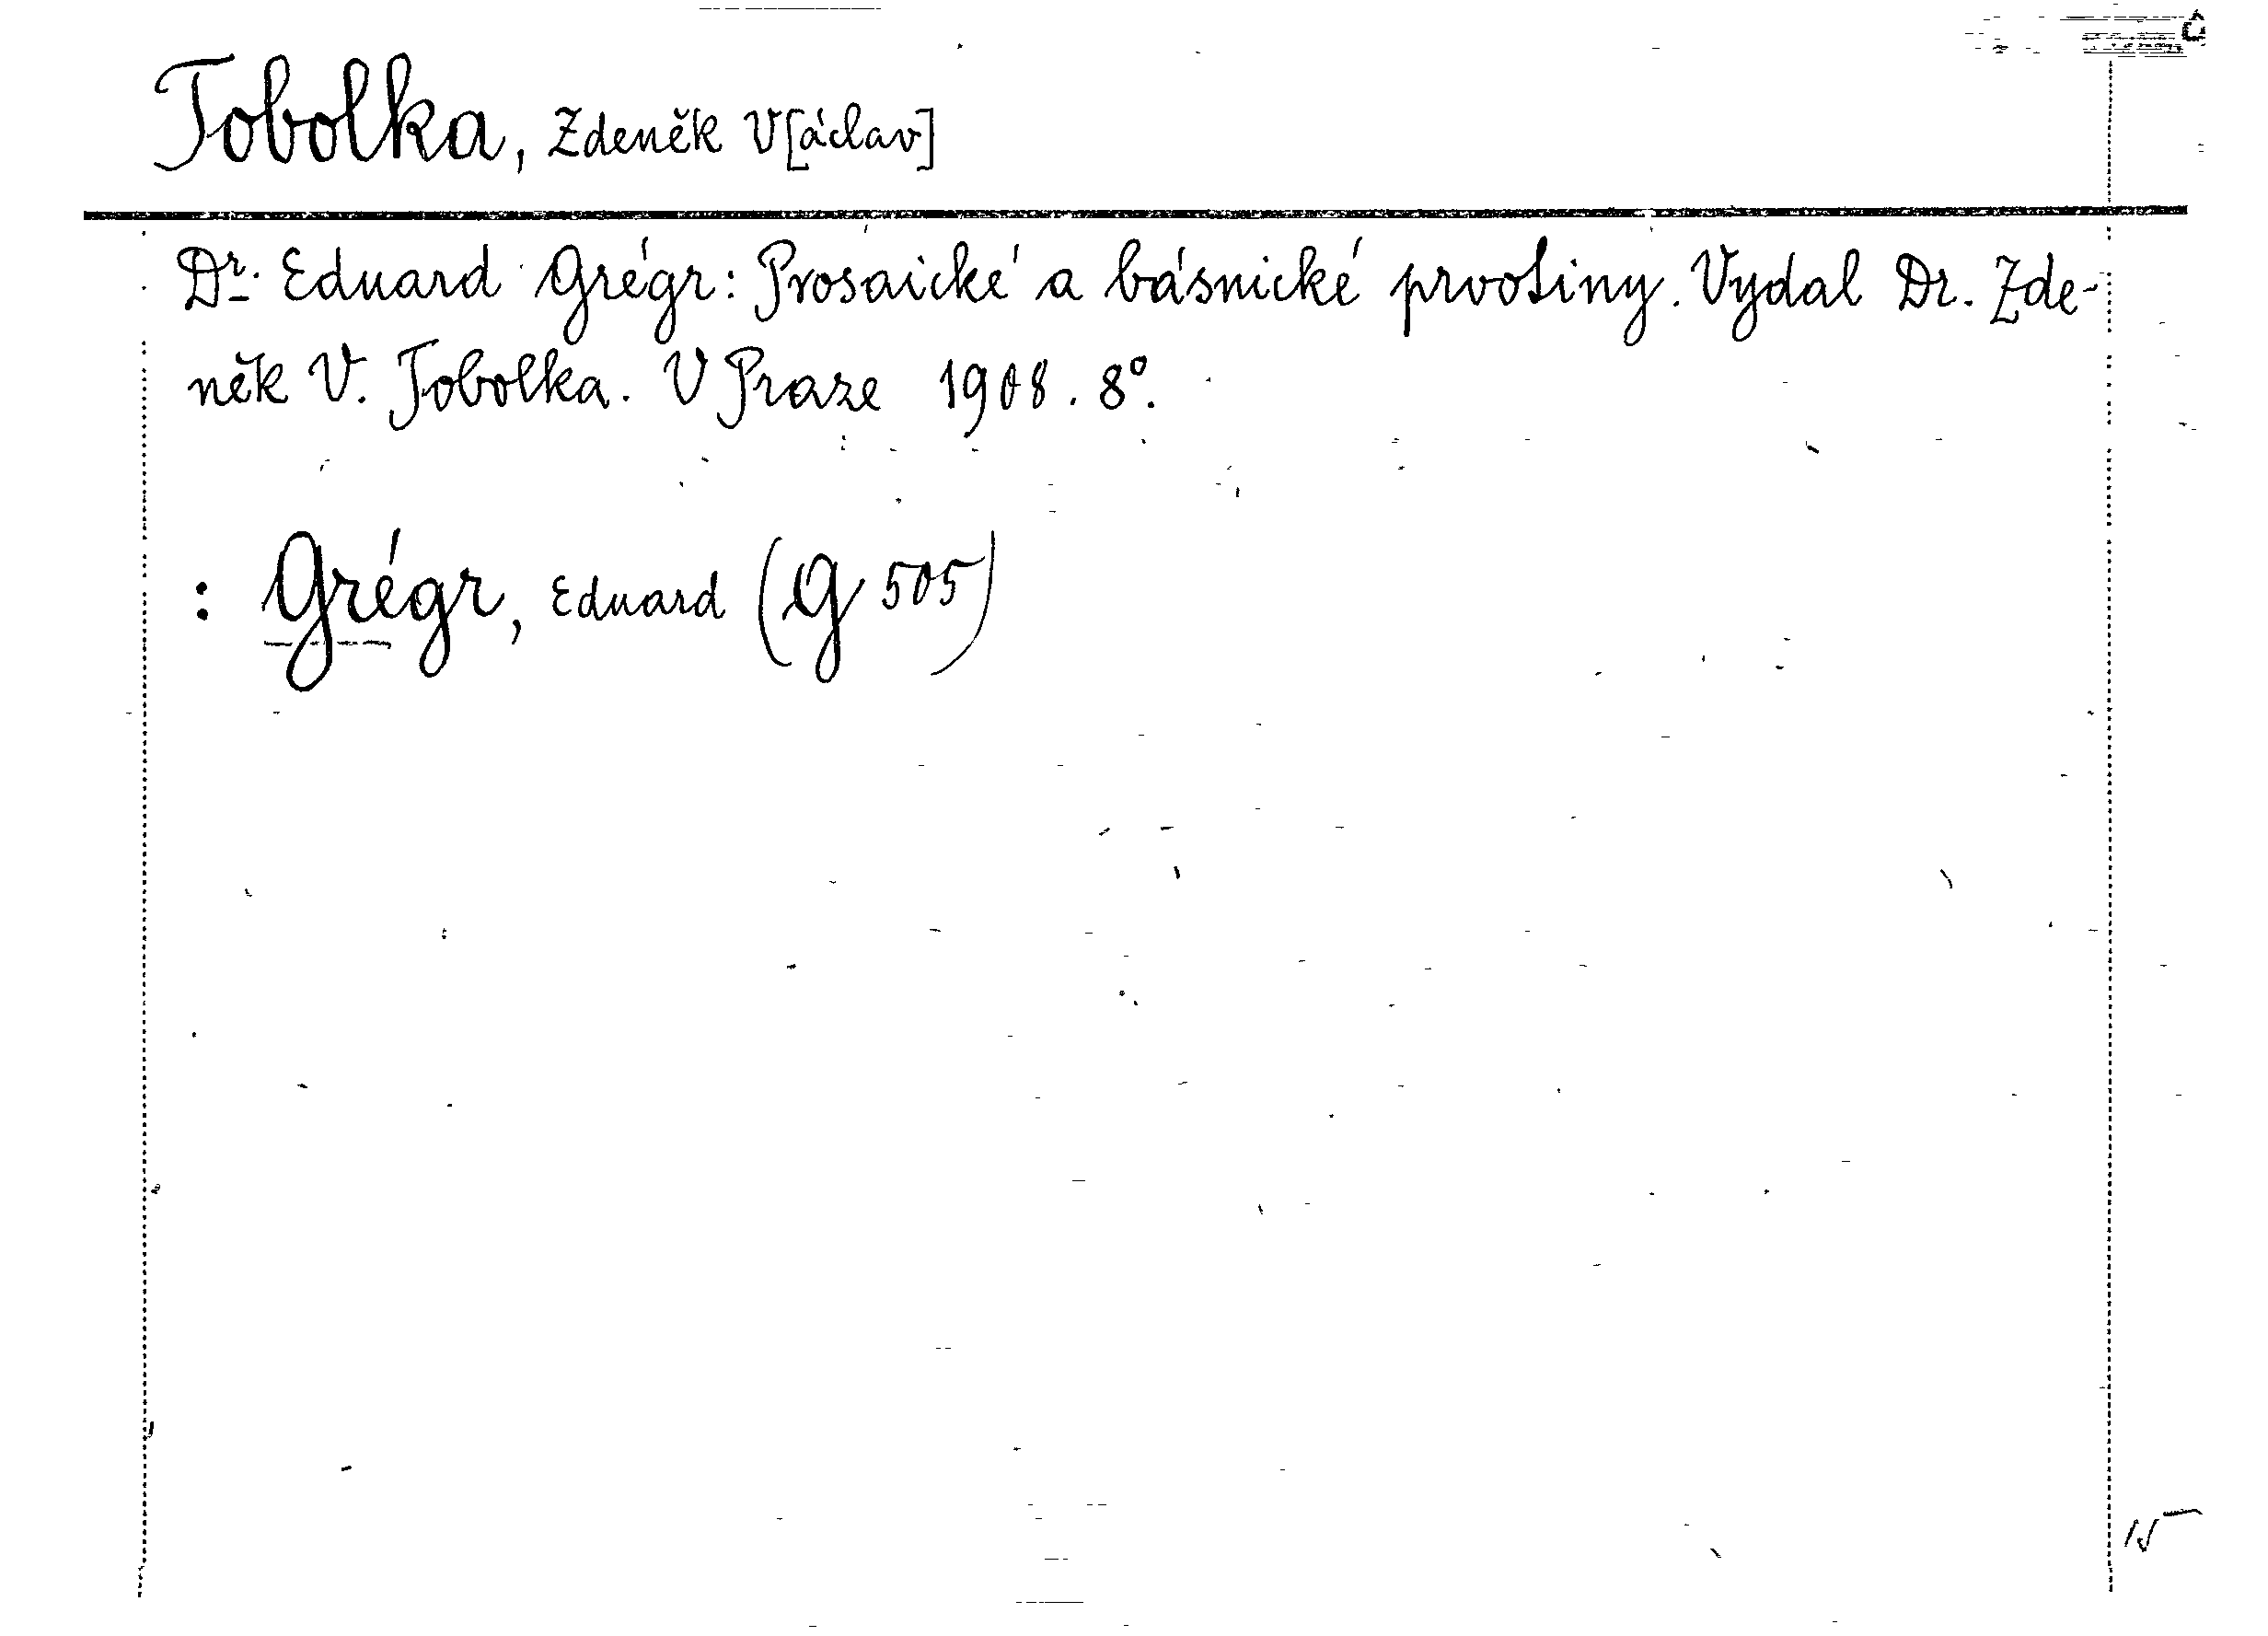 Tobolka, Zdeněk V[áclav]
Dr. Eduard Grégr: Prosaické a básnické prvotiny. Vydal Dr. Zde-
něk V. Tobolka. V Praze 1908. 8°.
: Grégr, Eduard (G 505)